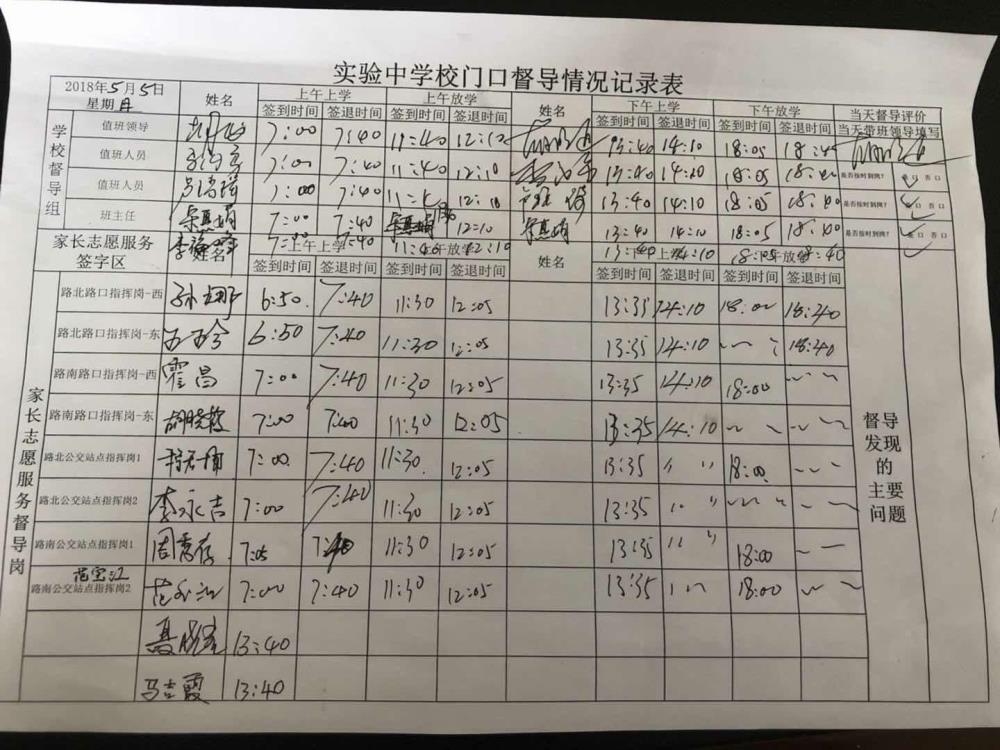 实验中学校门口督导情况记录表
2018年5月5日
星期日
姓名 上午上学 上午放学 姓名 下午上学 下午放学 当天督导评价
签到时间 签退时间 签到时间 签退时间 签到时间 签退时间 签到时间 签退时间 当天带班领导填写
学校督导组
值班领导 7:00 7:40 11:40 12:10 13:40 14:10 18:05
值班人员 7:00 7:40 11:40 12:10 13:40 14:10 18:05 18:40 是否按时到岗? 是口 否口
值班人员 7:00 7:40 12:10 13:40 14:10 18:05 18:40 是否按时到岗? 是口 否口
班主任 7:00 7:40 12:10 13:40 14:10 18:05 18:40 是否按时到岗? 是口 否口
7:00 7:40 11:40 12:10 13:40 14:10 18:05 18:40
家长志愿服务
签字区
姓名 上午上学 上午放学 姓名 下午上学 下午放学
签到时间 签退时间 签到时间 签退时间 签到时间 签退时间 签到时间 签退时间
家长志愿服务督导岗
路北路口指挥岗-西 6:50 7:40 11:30 12:05 13:35 14:10 18:00 18:40
路北路口指挥岗-东 6:50 7:40 11:30 12:05 13:35 14:10 18:40
路南路口指挥岗-西 霍昌 7:00 7:40 11:30 12:05 13:35 14:10 18:00
路南路口指挥岗-东 7:00 7:40 11:30 12:05 13:35 14:10
路北公交站点指挥岗1 7:00 7:40 11:30 12:05 13:35 〃 18:00
路北公交站点指挥岗2 李永吉 7:00 7:40 11:30 12:05 13:35 〃
路南公交站点指挥岗1 7:05 7:40 11:30 12:05 13:35 〃 18:00
范宝江
路南公交站点指挥岗2 7:00 7:40 11:30 12:05 13:35 〃 18:00
13:40
马吉霞 13:40
督导发现的主要问题